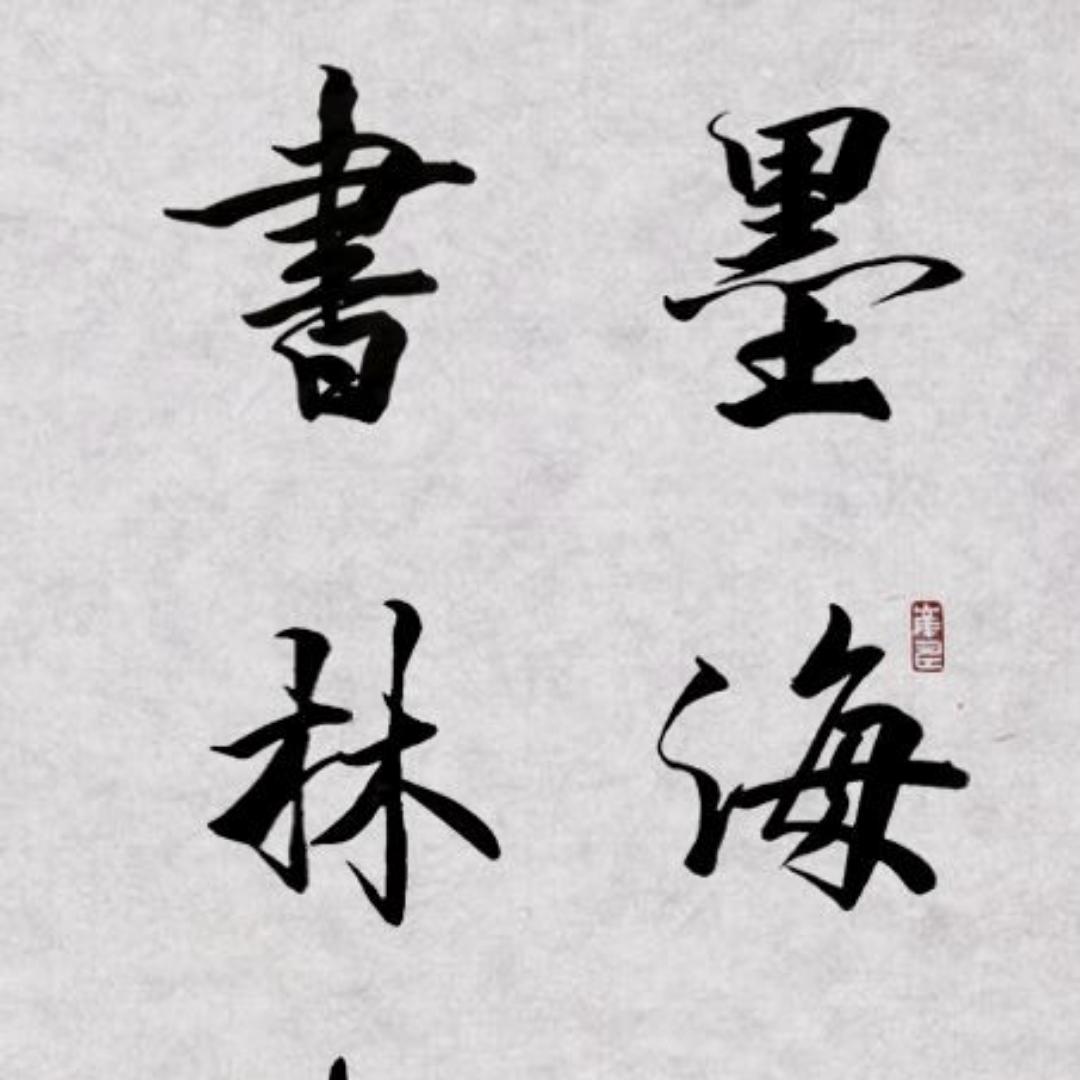 墨海
書林